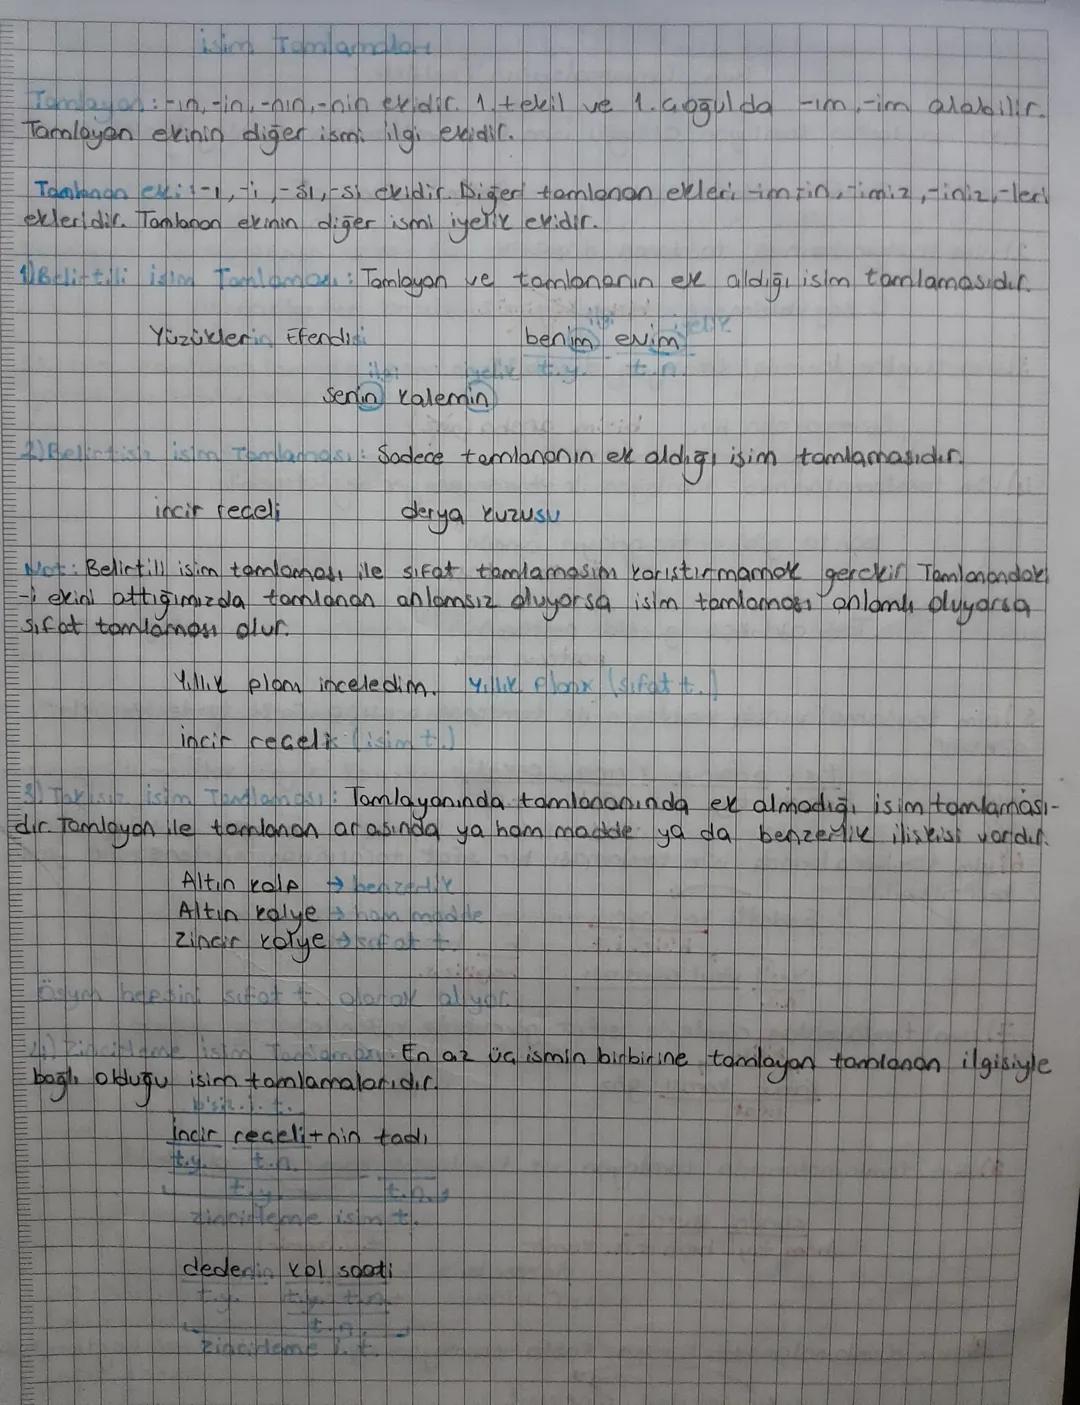 isim Tamlamaları
Tamlayan: -ın, -in, -nın, -nin ekidir. 1. tekil ve 1. çoğulda -ım, -im alabilir.
Tamlayan ekinin diğer ismi ilgi ekidir.
Tamlanan eki: -ı, -i, -sı, -si ekidir. Diğer tamlanan ekleri -im, -in, -imiz, -iniz, -leri
ekleridir. Tamlanan ekinin diğer ismi iyelik ekidir.
1) Belirtili isim Tamlaması: Tamlayan ve tamlananın ek aldığı isim tamlamasıdır.
ilgi iyelik
Yüzüklerin Efendisi benim evim
ilgi iyelik t.y. t.n.
senin kalemin
2) Belirtisiz isim Tamlaması: Sadece tamlananın ek aldığı isim tamlamasıdır.
incir reçeli derya kuzusu
Not: Belirtili isim tamlaması ile sıfat tamlamasını karıştırmamak gerekir Tamlanandaki
-i ekini attığımızda tamlanan anlamsız oluyorsa isim tamlaması anlamlı oluyorsa
sıfat tamlaması olur.
Yıllık planı inceledim. Yıllık planx (sıfat t.)
incir reçelix (isim t.)
3) Takısız isim Tamlaması: Tamlayanında tamlananında ek almadığı isim tamlaması-
dır. Tamlayan ile tamlanan arasında ya ham madde ya da benzerlik ilişkisi vardır.
Altın kalp → benzerlik
Altın kolye → ham madde
Zincir kolye → sıfat t.
Ösym hepsini sıfat t. olarak alıyor.
4) Zincirleme isim Tamlaması: En az üç ismin birbirine tamlayan tamlanan ilgisiyle
bağlı olduğu isim tamlamalarıdır.
b'siz. i. t.
incir reçeli+nin tadı
t.y. t.n.
t.y. t.n.
zincirleme isim t.
dedenin kol saati
t.y. t.y. t.n.
t.n.
zincirleme i. t.